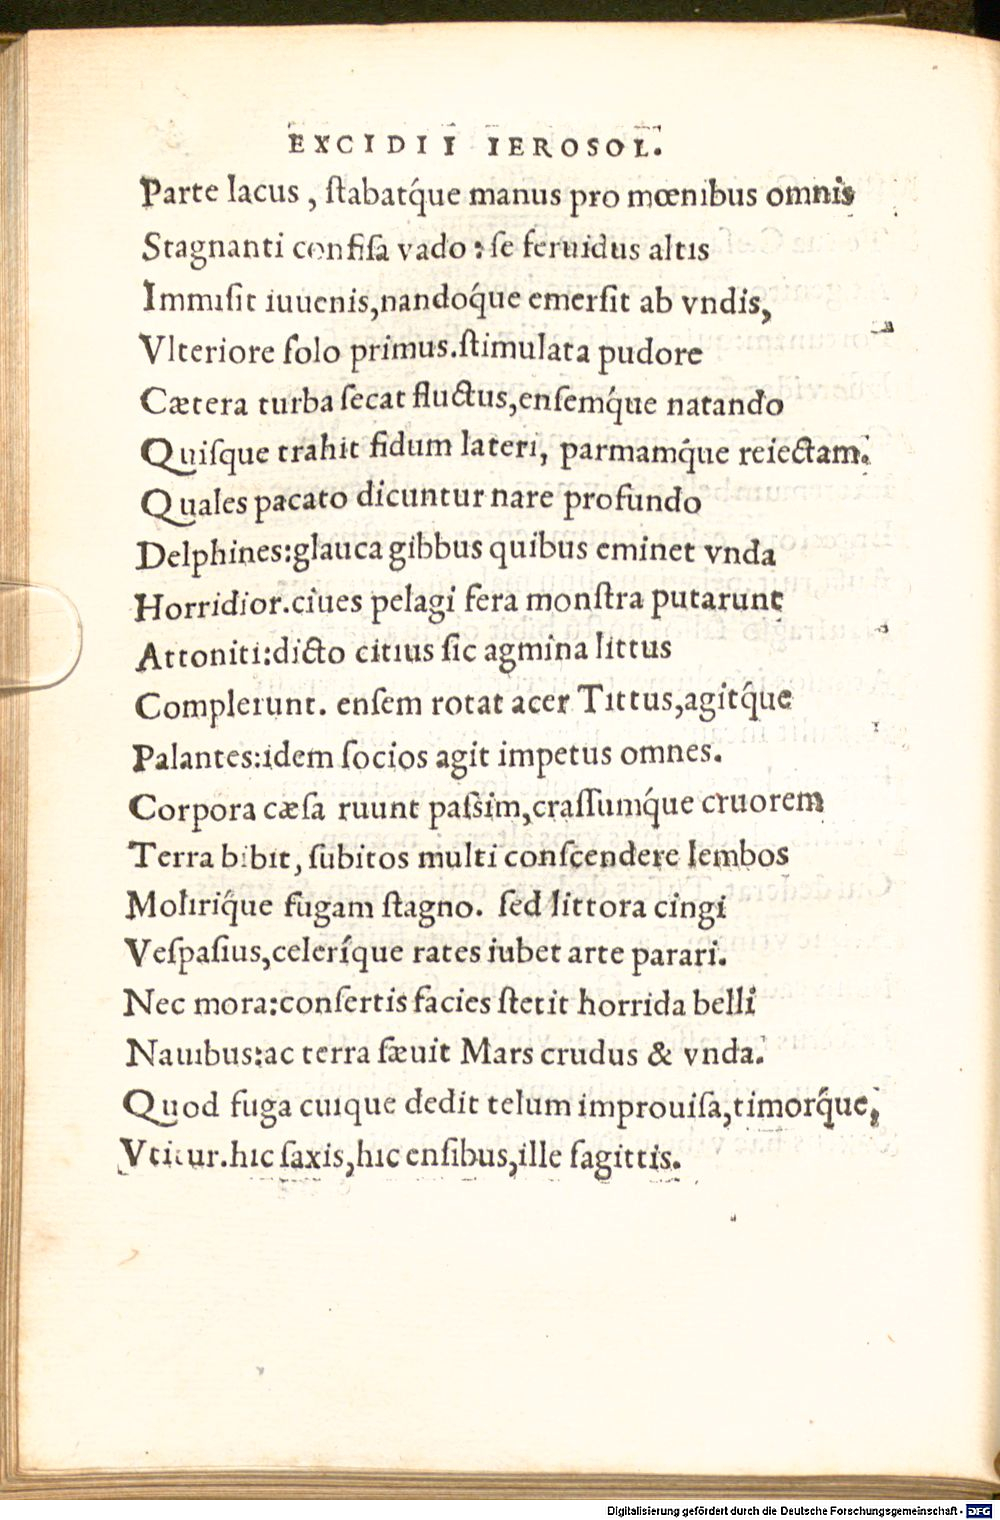 EXCIDII IEROSOL.
Parte lacus, ſtabatq́ue manus pro mœnibus omnis
Stagnanti confiſa vado: ſe feruidus altis
Immiſit iuuenis, nandoq́ue emerſit ab vndis,
Vlteriore ſolo primus. ſtimulata pudore
Cætera turba ſecat fluctus, enſemq́ue natando
Quiſque trahit fidum lateri, parmamq́ue reiectam.
Quales pacato dicuntur nare profundo
Delphines: glauca gibbus quibus eminet vnda
Horridior. ciues pelagi fera monſtra putarunt
Attoniti: dicto citius ſic agmina littus
Complerunt. enſem rotat acer Tittus, agitq́ue
Palantes: idem ſocios agit impetus omnes.
Corpora cæſa ruunt paſsim, craſſumq́ue cruorem
Terra bibit, ſubitos multi conſcendere lembos
Moliriq́ue fugam ſtagno. ſed littora cingi
Veſpaſius, celeríque rates iubet arte parari.
Nec mora: conſertis facies ſtetit horrida belli
Nauibus: ac terra ſæuit Mars crudus & vnda.
Quod fuga cuique dedit telum improuiſa, timorq́ue,
Vtitur. hic ſaxis, hic enſibus, ille ſagittis.
Digitalisierung gefördert durch die Deutsche Forschungsgemeinschaft - DFG